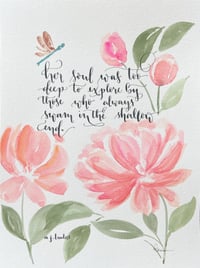 her soul was too
deep to explore by
those who always
swam in the shallow
end.